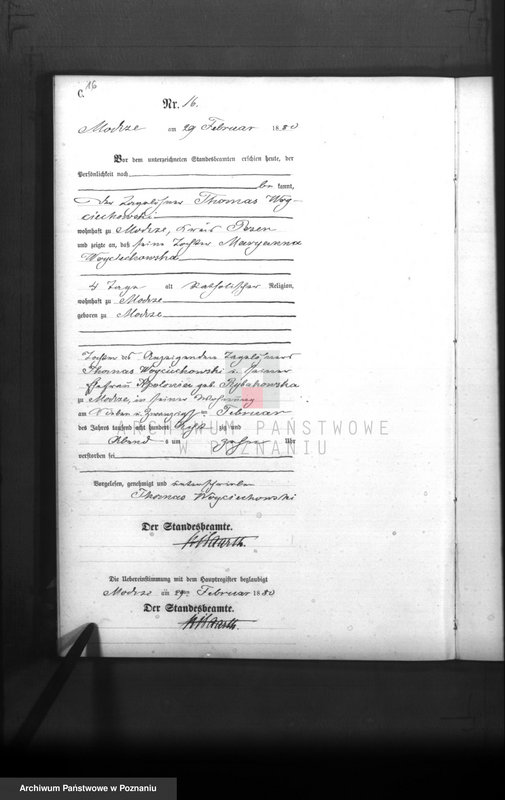 C.
16
Nr. 16.
Modrze am 29 Februar 1880
Vor dem unterzeichneten Standesbeamten erschien heute, der
Persönlichkeit nach
be kannt,
der Tagelöhner Thomas Woy-
ciechowski
wohnhaft zu Modrze, Kreis Posen
und zeigte an, daß seine Tochter Maryanna
Woyciechowska
4 Tage alt katholischer Religion,
wohnhaft zu Modrze
geboren zu Modrze
Tochter des Anzeigenden Tagelöhners
Thomas Woyciechowski u. seiner
Ehefrau Apolonia geb. Rybakowska
zu Modrze, in seiner Wohnung
am Sieben u. Zwanzigsten Februar
des Jahres tausend acht hundert acht zig und
Abends um Zehn Uhr
verstorben sei
Vorgelesen, genehmigt und unterschrieben
Thomas Woyciechowski
Der Standesbeamte.
Die Uebereinstimmung mit dem Hauptregister beglaubigt
Modrze am 29 Februar 1880
Der Standesbeamte.
ARCHIWUM PAŃSTWOWE
W POZNANIU
Archiwum Państwowe w Poznaniu